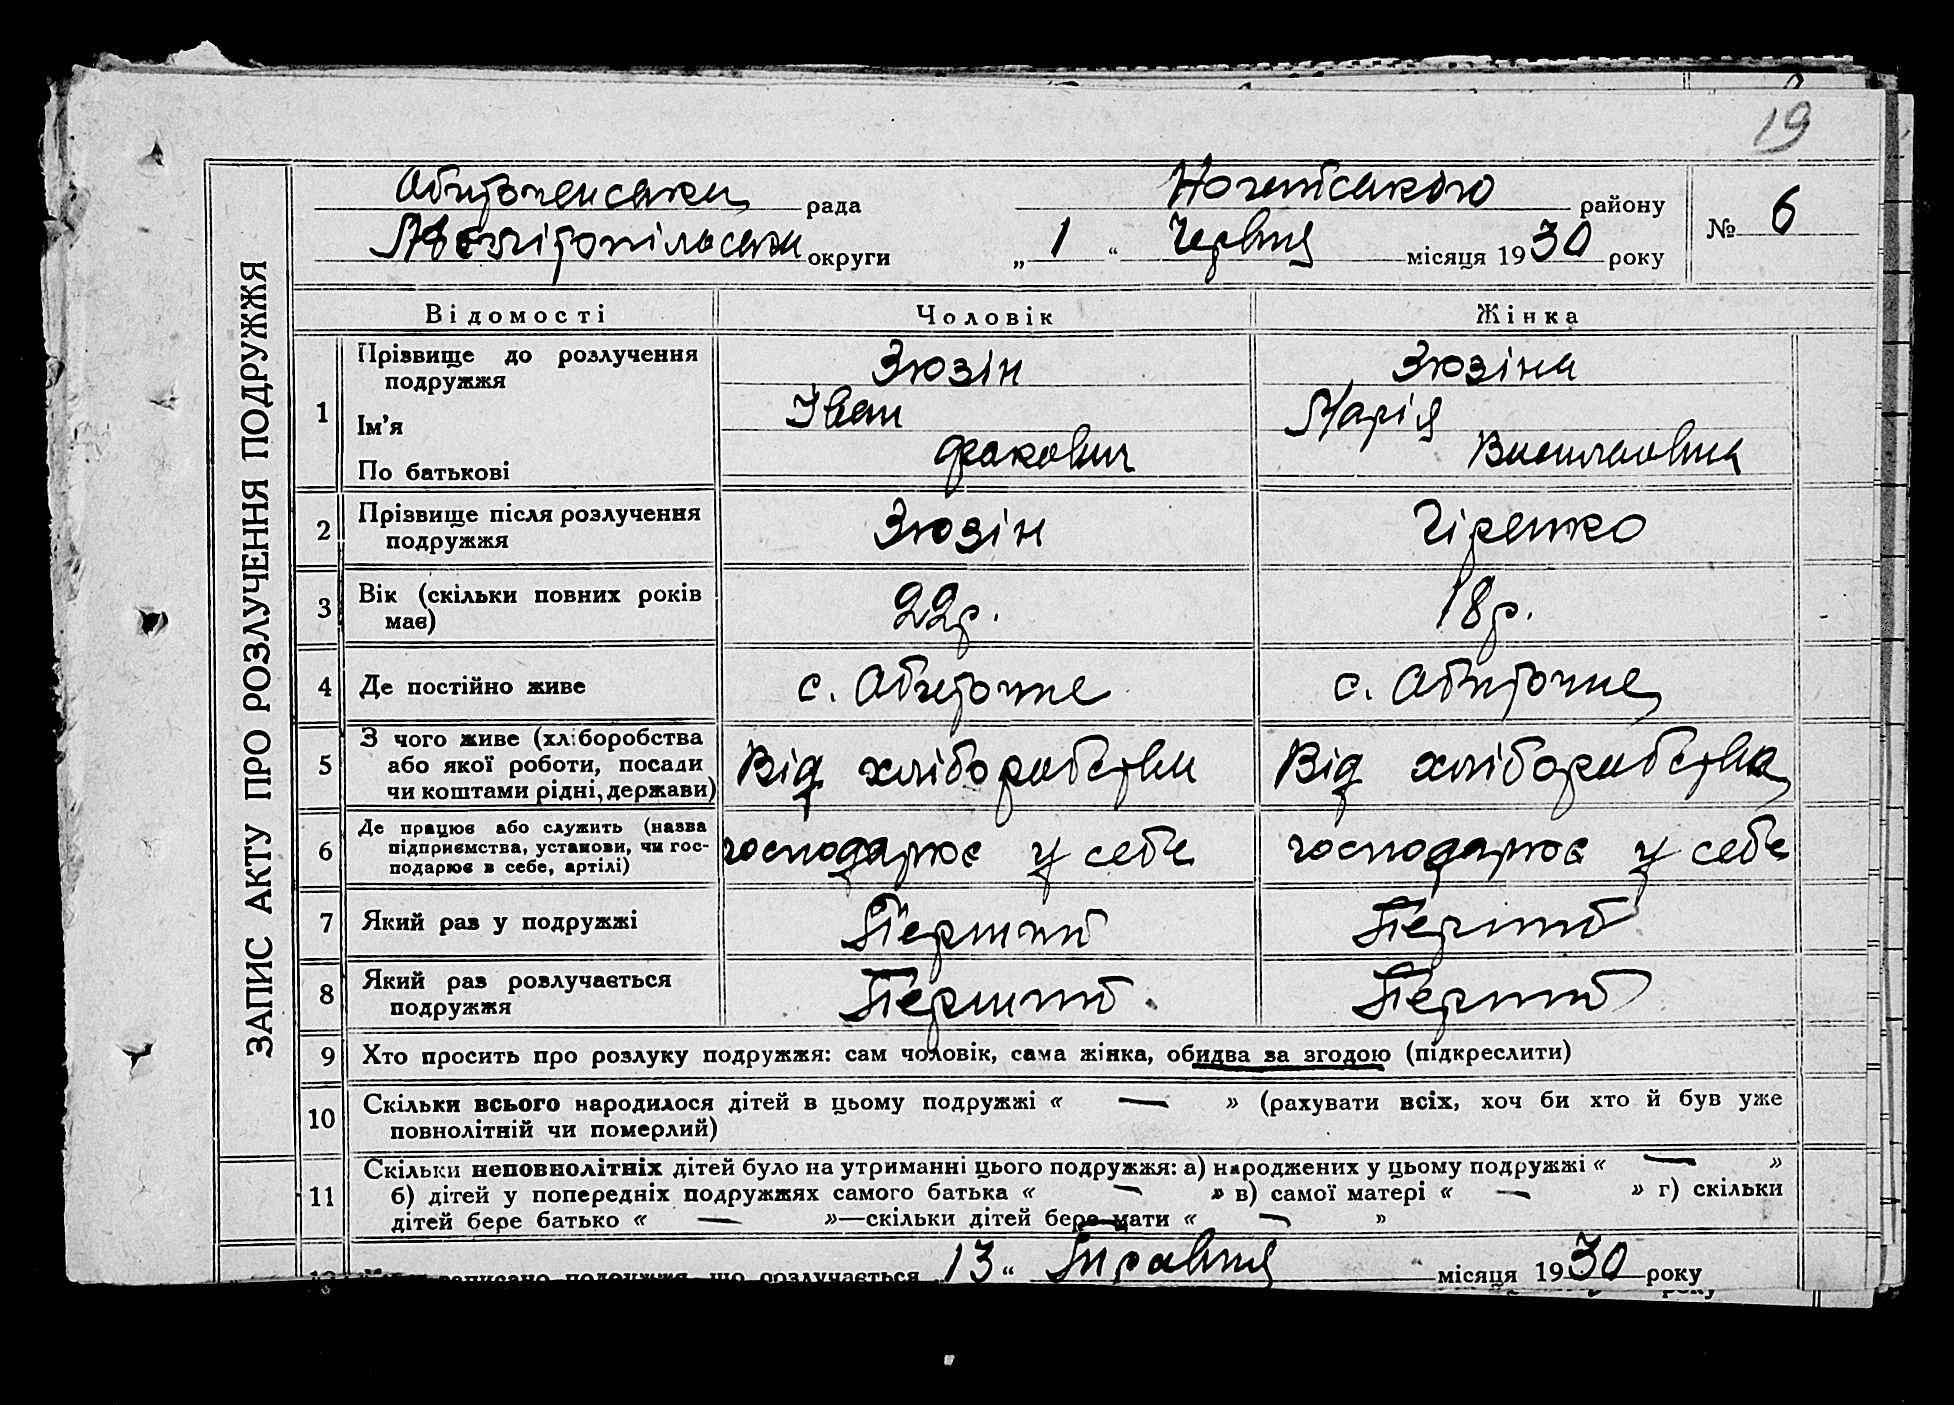 19
Обиточенська рада Ногайського району № 6
Мелітопільська округи „ 1 “ Червня місяця 1930 року
ЗАПИС АКТУ ПРО РОЗЛУЧЕННЯ ПОДРУЖЖЯ
Відомості Чоловік Жінка
1 Прізвище до розлучення Зюзін Зюзіна
подружжя
Ім’я Іван Марія
По батькові Василовна
2 Прізвище після розлучення Зюзін Гіренко
подружжя
3 Вік (скільки повних років 22 р. 18 р.
має)
4 Де постійно живе с. Обиточне с. Обиточне
5 З чого живе (хліборобства Від хліборобства Від хліборобства
або якої роботи, посади
чи коштами рідні, держави)
6 Де працює або служить (назва господарює у себе господарює у себе
підприємства, установи, чи гос-
подарює в себе, артілі)
7 Який раз у подружжі Перший Перший
8 Який раз розлучається Перший Перший
подружжя
9 Хто просить про розлуку подружжя: сам чоловік, сама жінка, обидва за згодою (підкреслити)
10 Скільки всього народилося дітей в цьому подружжі « — » (рахувати всіх, хоч би хто й був уже
повнолітній чи померлий)
11 Скільки неповнолітніх дітей було на утриманні цього подружжя: а) народжених у цьому подружжі « — »
б) дітей у попередніх подружжях самого батька « — » в) самої матері « — » г) скільки
дітей бере батько « — »—скільки дітей бере мати « — »
записано подружжя, що розлучається „ 13 “ Травня місяця 1930 року